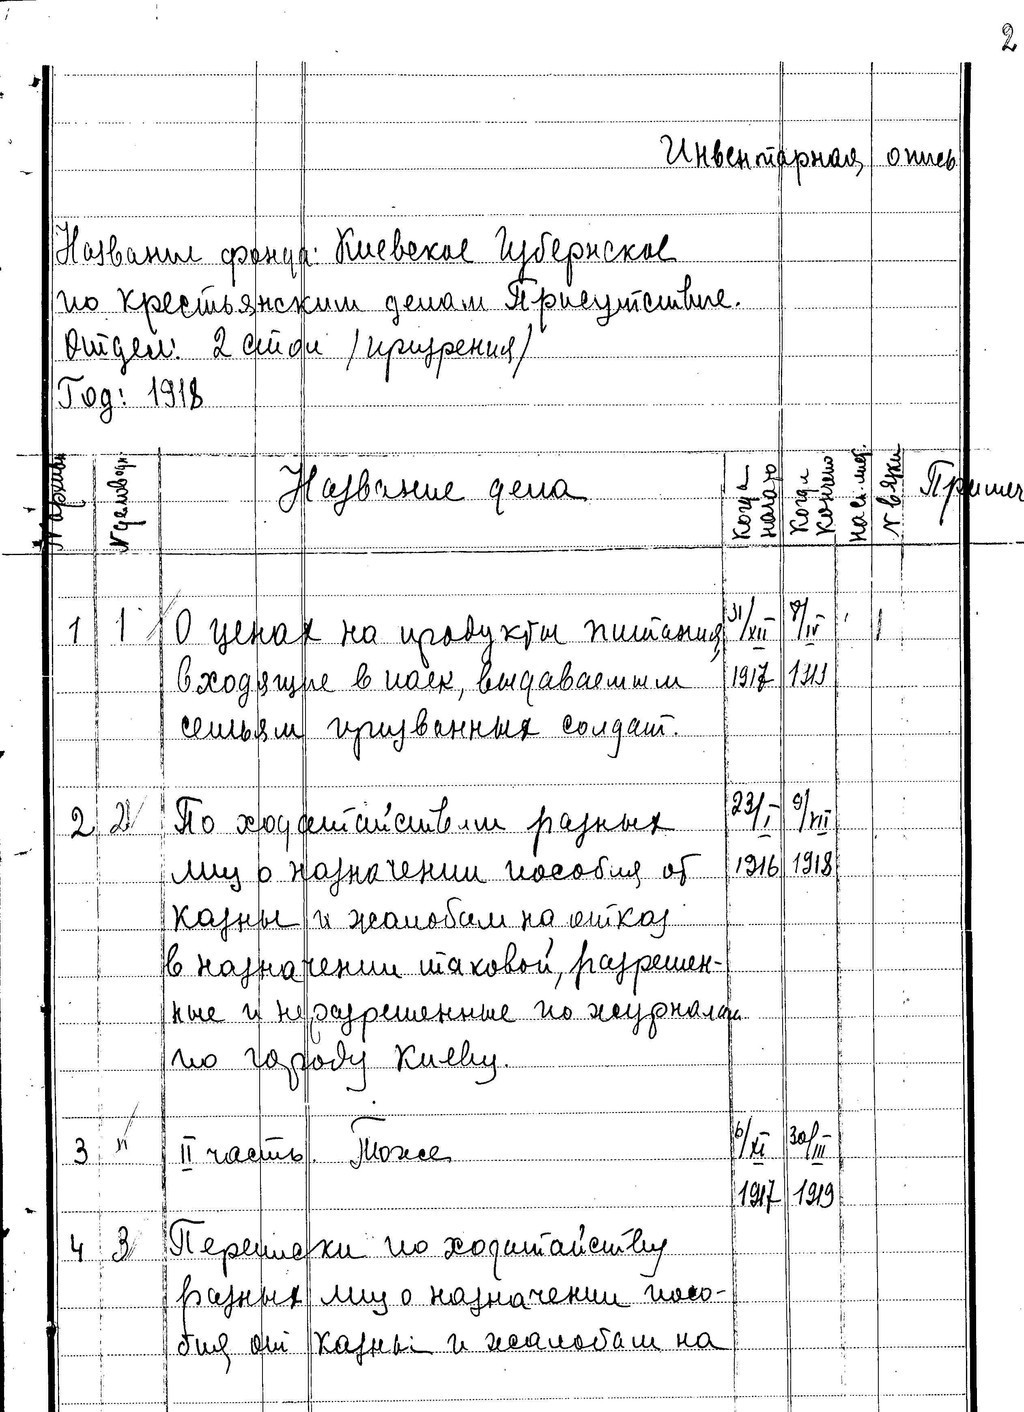 2
Инвентарная опись
Название фонда: Киевское Губернское
по крестьянским делам Присутствие.
Отдел: 2 стол /призрения/
Год: 1918
N архивн N деловодн. Название дела Когда начато Когда кончено N вязки Примеч
1 1 О ценах на продукты питания, 31/XII 9/IV 1
входящие в паек, выдаваемым 1917
семьям призванных солдат.
2 2 По ходатайствам разных 23/I 9/XII
лиц о назначении пособия от 1916 1918
казны и жалобам на отказ
в назначении таковой, разрешен-
ные и неразрешенные по журналам
по городу Киеву.
3 " II часть. Тоже 6/XI 30/III
1917 1919
4 3 Переписки по ходатайству
разных лиц о назначении посо-
бия от казны и жалобам на